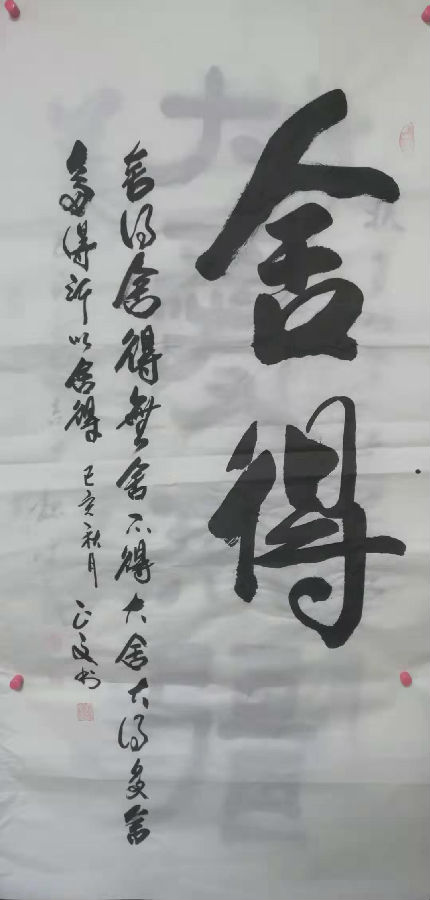 舍得
舍得舍得無舍不得大舍大得多舍
多得所以舍得 己亥秋月 正文书